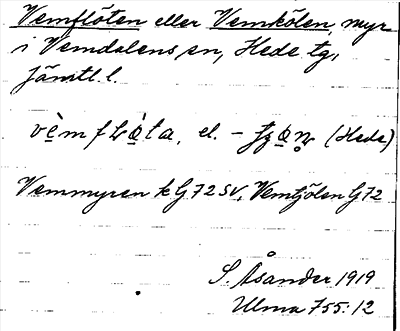 Vemflöten eller Vemkölen, myr
i Vemdalens sn, Hede tg,
Jämtl. l.
(Hede)
Vemmyren k G 72 SV, Vemtjölen G 72
S. Åsander 1919
Ulma 755:12